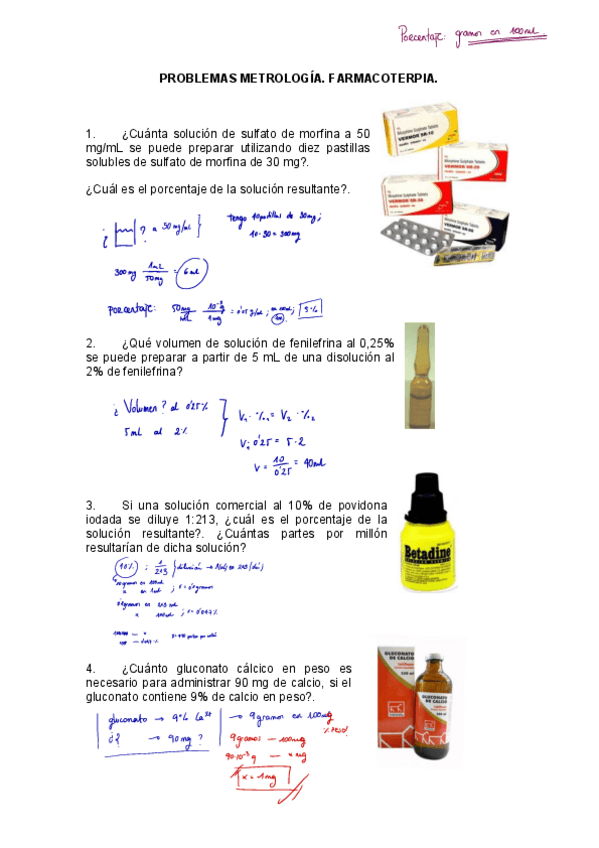 Porcentaje: gramos en 100ml
PROBLEMAS METROLOGÍA. FARMACOTERPIA.
1. ¿Cuánta solución de sulfato de morfina a 50
mg/mL se puede preparar utilizando diez pastillas
solubles de sulfato de morfina de 30 mg?.
¿Cuál es el porcentaje de la solución resultante?.
¿ ? a 50 mg/mL
Tengo 10 pastillas de 30mg;
10·30 = 300mg
300mg 1mL/50mg = 6ml
Porcentaje: 50mg/mL 10⁻³g/1mg = 0'05 g/mL; en 100mL; 5%
2. ¿Qué volumen de solución de fenilefrina al 0,25%
se puede preparar a partir de 5 mL de una disolución al
2% de fenilefrina?
¿Volumen? al 0'25%
5mL al 2%
V₁ · %₁ = V₂ · %₂
V₁ 0'25 = 5·2
V = 10/0'25 = 40ml
3. Si una solución comercial al 10% de povidona
iodada se diluye 1:213, ¿cuál es el porcentaje de la
solución resultante?. ¿Cuántas partes por millón
resultarían de dicha solución?
Betadine
10% ; 1/213 dilución →
10 gramos en 100ml
x en 1ml ;
x 100ml ; x = 0'047%
4. ¿Cuánto gluconato cálcico en peso es
necesario para administrar 90 mg de calcio, si el
gluconato contiene 9% de calcio en peso?.
GLUCONATO
DE CALCIO
gluconato → 9% Ca²⁺ → 9 gramos en 100mg
% peso!
¿? → 90mg?
9 gramos — 100mg
90·10⁻³g — x mg
x = 1mg